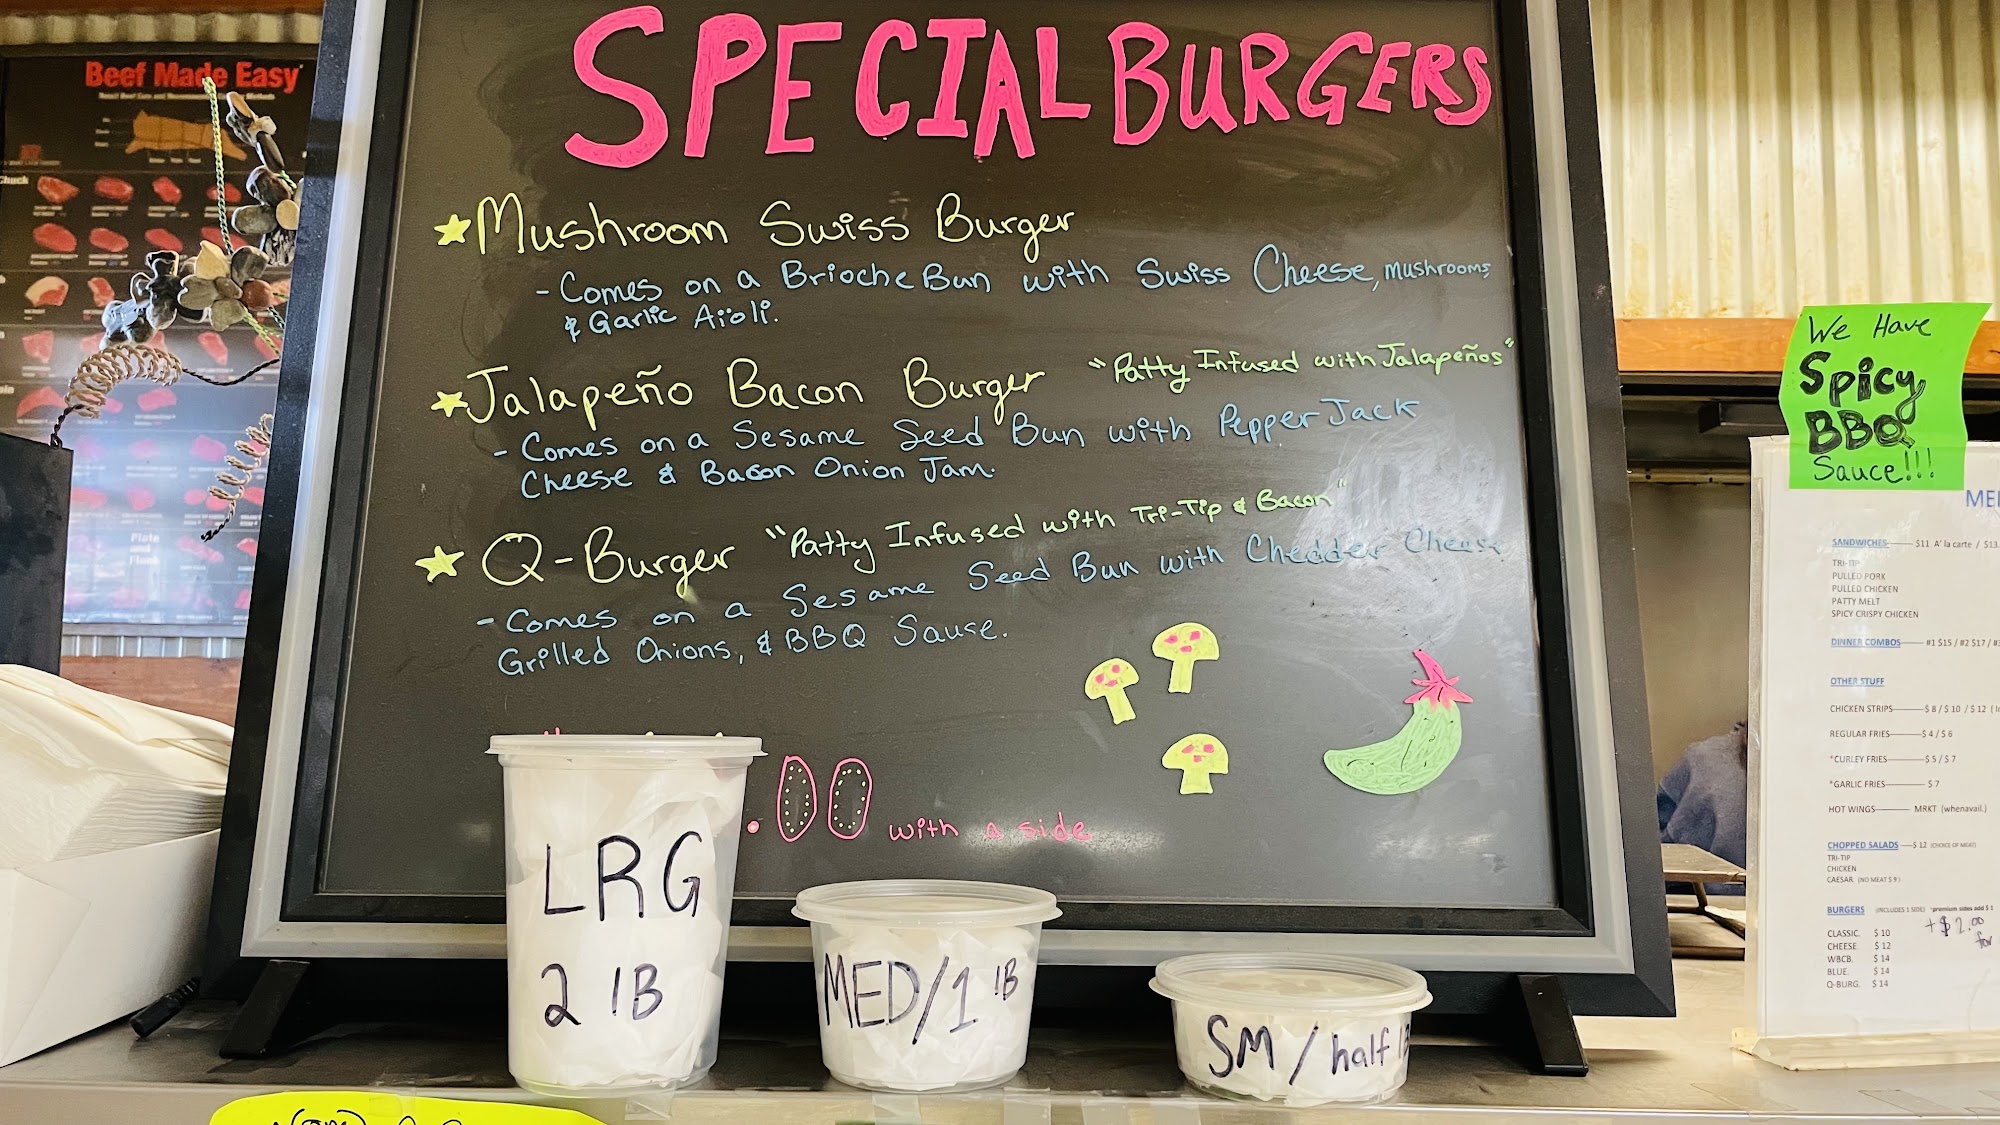 Beef Made Easy
Chuck
Plate
and
Flank
SPECIAL BURGERS
Mushroom Swiss Burger
- Comes on a Brioche Bun with Swiss Cheese, Mushrooms,
& Garlic Aioli.
Jalapeño Bacon Burger "Patty Infused with Jalapeños"
- Comes on a Sesame Seed Bun with Pepper Jack
Cheese & Bacon Onion Jam.
Q-Burger "Patty Infused with Tri-Tip & Bacon"
- Comes on a Sesame Seed Bun with Chedder Cheese
Grilled Onions, & BBQ Sauce.
.00 with a side
LRG
2 lB
MED/1 lB
SM/half
We Have
Spicy
BBQ
Sauce!!!
SANDWICHES $11 A' la carte / $13.
TRI-TIP
PULLED PORK
PULLED CHICKEN
PATTY MELT
SPICY CRISPY CHICKEN
DINNER COMBOS #1 $15 / #2 $17 /
OTHER STUFF
CHICKEN STRIPS $ 8 / $ 10 / $ 12
REGULAR FRIES $ 4 / $ 6
*CURLEY FRIES $ 5 / $ 7
*GARLIC FRIES $ 7
HOT WINGS MRKT (whenavail.)
CHOPPED SALADS $ 12 (CHOICE OF MEAT)
TRI-TIP
CHICKEN
CAESAR (NO MEAT $ 9)
BURGERS (INCLUDES 1 SIDE) premium sides add $ 1
+$2.00
for
CLASSIC. $ 10
CHEESE. $ 12
WBCB. $ 14
BLUE. $ 14
Q-BURG. $ 14